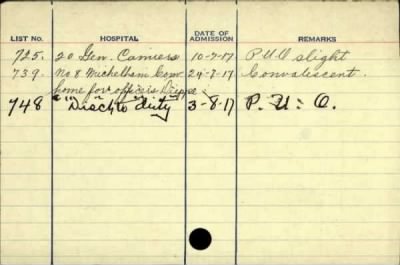 LIST NO. HOSPITAL DATE OF ADMISSION REMARKS
725. 20 Gen. Camiers 10-7-17 P.U.O slight
739. No 8 Michelham Con 24-7-17 Convalescent.
home for officers Dieppe
748 " Disch to duty 3-8-17 P. U. O.